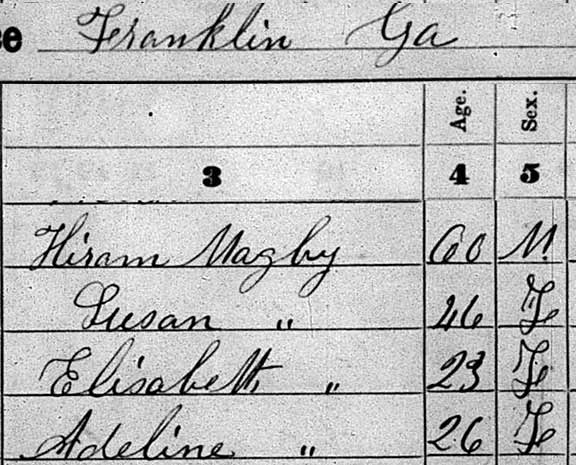 Franklin Ga
Age. Sex.
3 4 5
Hiram Magby 60 M
Susan " 46 F
Elisabett " 23 F
Adeline " 26 F